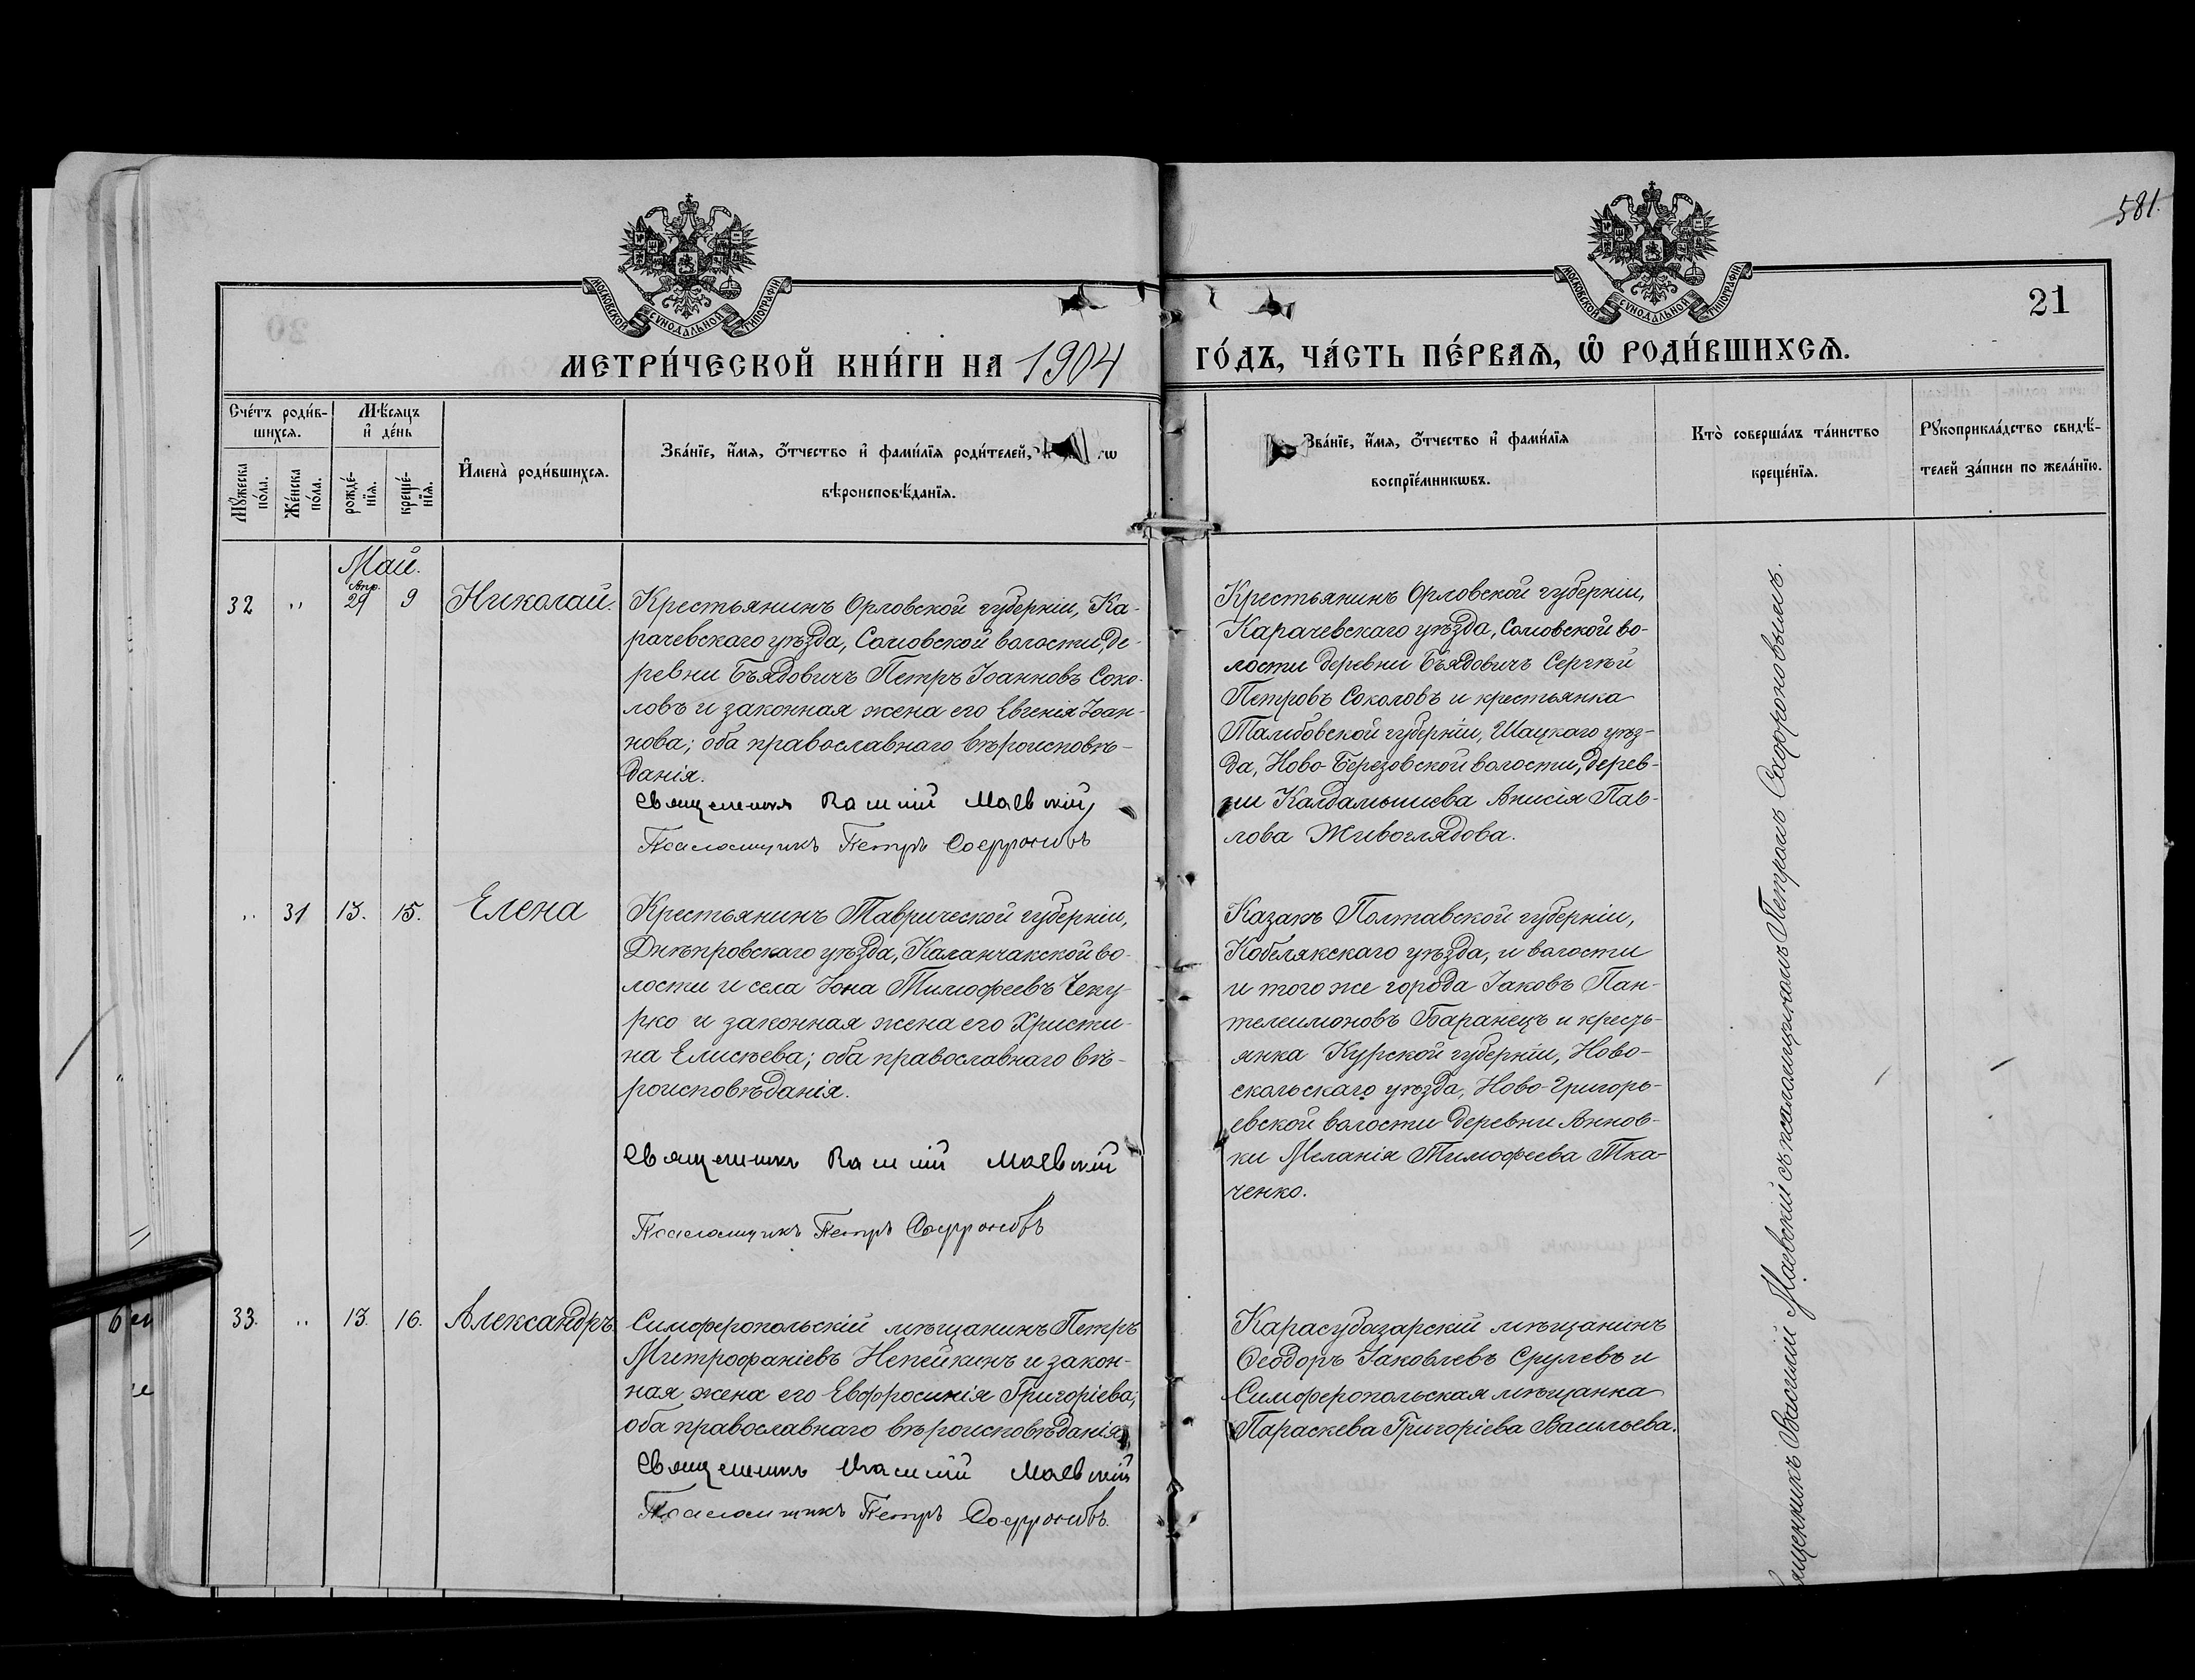 581.
МОСКОВСКОЙ СУНОДАЛЬНОЙ ТИПОГРАФІИ
МОСКОВСКОЙ СУНОДАЛЬНОЙ ТИПОГРАФІИ
21
МЕТРИ́ЧЕСКОЙ КНИ́ГИ НА 1904
ГО́ДЪ, ЧА́СТЬ ПЕ́РВАѦ, Ѿ РОДИ́ВШИХСѦ.
Сче́тъ роди́в-
шихсѧ.
Мѣ́сѧцъ
и҆ де́нь
Мꙋ́жеска
по́ла.
Же́нска
по́ла.
рожде́-
нїѧ.
креще́-
нїѧ.
И҆мена̀ роди́вшихсѧ.
Зва́нїе, и҆́мѧ, ѻ҆́тчество и҆ фами́лїѧ роди́телей,
вѣроисповѣ́данїѧ.
Зва́нїе, и҆́мѧ, ѻ҆́тчество и҆ фами́лїѧ
воспрїе́мникѡвъ.
Кто̀ соверша́лъ та́инство
креще́нїѧ.
Рꙋкоприкла́дство свидѣ́-
телей за́писи по жела́нїю.
Май.
Апр.
32 " 29 9 Николай.
Крестьянинъ Орловской губерніи, Ка-
рачевскаго уѣзда, Сомовской волости, де-
ревни Бъядовичъ Петръ Іоанновъ Соко-
ловъ и законная жена его Евгенія Іоан-
нова; оба православнаго вѣроисповѣ-
данія.
Священникъ Василій Маевскій
Псаломщикъ Петръ Софроновъ
Крестьянинъ Орловской губерніи,
Карачевскаго уѣзда, Сомовской во-
лости деревни Бъядовичъ Сергѣй
Петровъ Соколовъ и крестьянка
Тамбовской губерніи, Шацкаго уѣз-
да, Ново-Березовской волости, дерев-
ни Калдамышева Анисія Пав-
лова Живоглядова.
" 31 13. 15. Елена
Крестьянинъ Таврической губерніи,
Днѣпровскаго уѣзда, Каланчакской во-
лости и села Іона Тимофеевъ Чеку-
рко и законная жена его Христи-
на Елисѣева; оба православнаго вѣ-
роисповѣданія.
Священникъ Василій Маевскій
Псаломщикъ Петръ Софроновъ
Казакъ Полтавской губерніи,
Кобелякскаго уѣзда, и волости
и того же города Іаковъ Пан-
телеимоновъ Баранецъ и кресть-
янка Курской губерніи, Ново-
скольскаго уѣзда, Ново-Григорь-
евской волости деревни Аннов-
ки Меланія Тимофеева Тка-
ченко.
33. " 13. 16. Александръ.
Симферопольскій мѣщанинъ Петръ
Митрофаніевъ Непейкинъ и закон-
ная жена его Евфросинія Григоріева;
оба православнаго вѣроисповѣданія.
Священникъ Василій Маевскій
Псаломщикъ Петръ Софроновъ.
Карасубазарскій мѣщанинъ
Ѳеодоръ Іаковлевъ Срулевъ и
Симферопольская мѣщанка
Параскева Григоріева Васильева.
Священникъ Василій Маевскій съ псаломщикомъ Петромъ Софроновымъ.